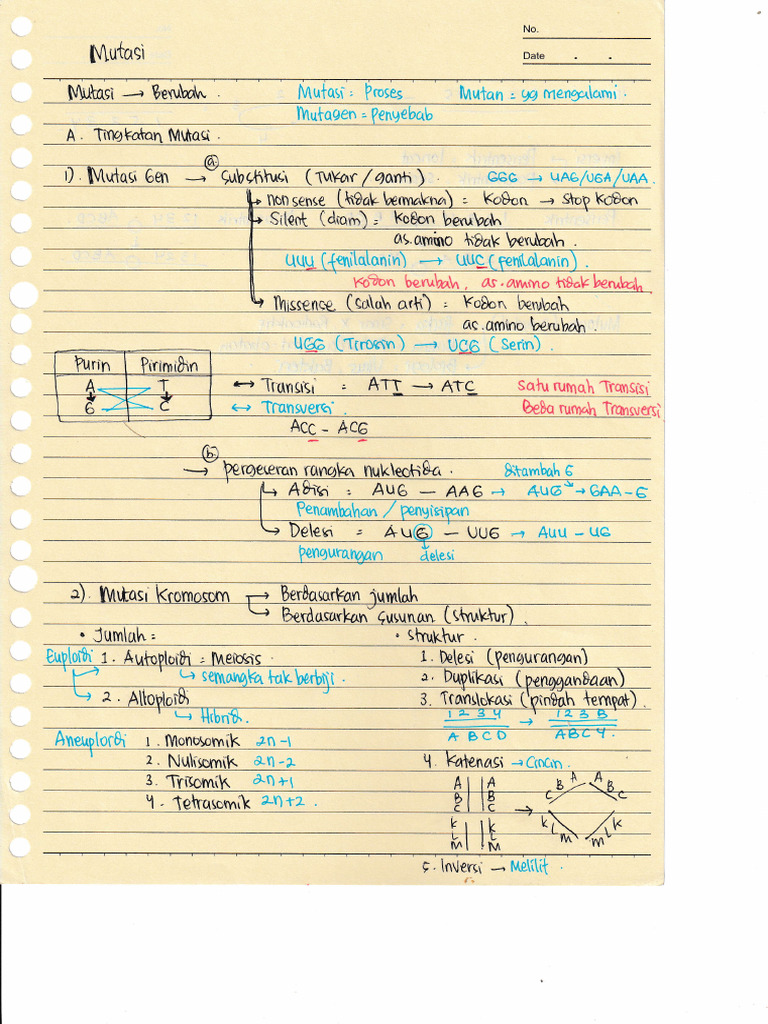 No.
Date . .
Mutasi
Mutasi → Berubah. Mutasi = Proses Mutan = yg mengalami.
Mutagen = penyebab
A. Tingkatan Mutasi.
1). Mutasi Gen → a. Substitusi (Tukar/ganti). GGG → UAG/UGA/UAA.
↳ nonsense (tidak bermakna) = Kodon → stop kodon
↳ Silent (diam) = Kodon berubah
as.amino tidak berubah.
UUU (fenilalanin) → UUC (fenilalanin).
Kodon berubah, as.amino tidak berubah.
↳ Missense (salah arti) = Kodon berubah
as.amino berubah.
UGG (Tirosin) → UCG (Serin).
Purin Pirimidin
A T
G C
↔ Transisi = ATT → ATC Satu rumah Transisi
↔ Transversi. Beda rumah Transversi
ACC - ACG
→ b. pergeseran rangka nukleotida. ditambah G
↳ Adisi = AUG - AAG → AUG → GAA-G
Penambahan / penyisipan
↳ Delesi = AUG - UUG → AUU - UG
pengurangan delesi
2). Mutasi Kromosom → Berdasarkan jumlah
↳ Berdasarkan susunan (struktur).
• Jumlah =
Euploidi 1. Autoploidi = Meiosis.
↳ semangka tak berbiji.
2. Alloploidi
↳ Hibrid.
Aneuploidi 1. Monosomik 2n-1
2. Nulisomik 2n-2
3. Trisomik 2n+1
4. Tetrasomik 2n+2.
• Struktur.
1. Delesi (pengurangan)
2. Duplikasi (penggandaan)
3. Translokasi (pindah tempat).
1 2 3 4 → 1 2 3 B
A B C D A B C 4.
4. Katenasi → Cincin.
A A C B A A B C
B B
C C →
K K K L M M L K
L L
M M
5. Inversi → Melilit.